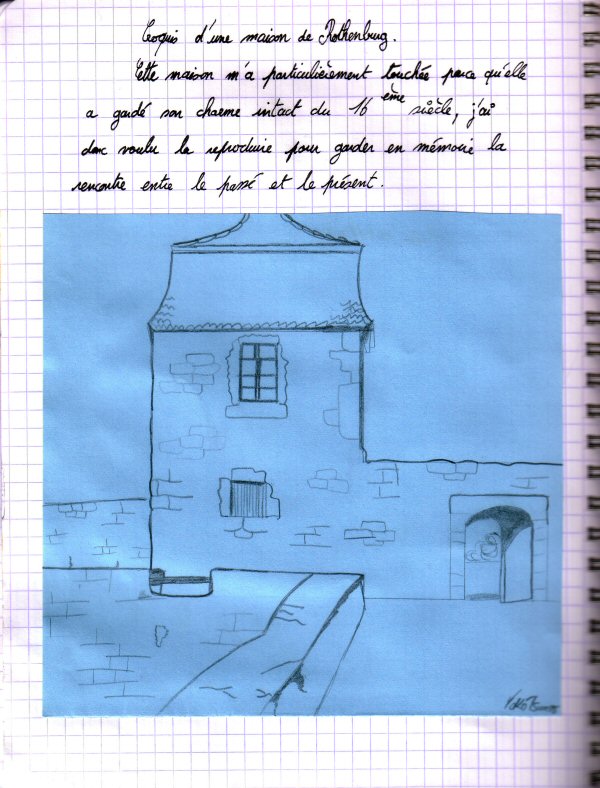 Croquis d'une maison de Rothenburg.
Cette maison m'a particulièrement touchée parce qu'elle
a gardé son charme intact du 16 ème siècle, j'ai
donc voulu la reproduire pour garder en mémoire la
rencontre entre le passé et le présent.